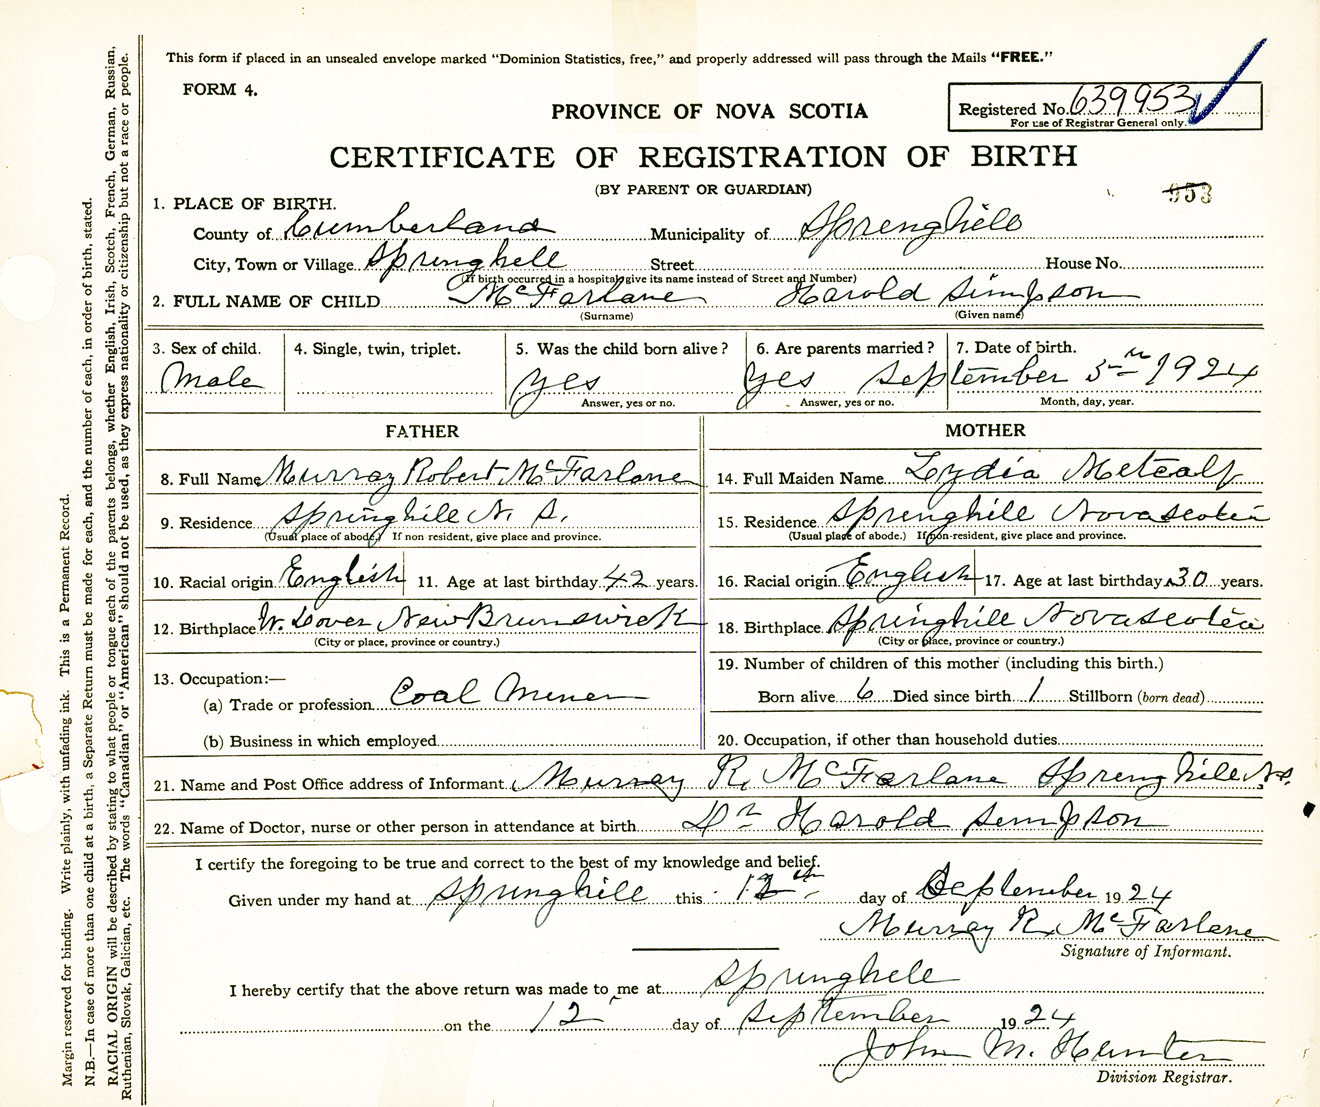 This form if placed in an unsealed envelope marked “Dominion Statistics, free,” and properly addressed will pass through the Mails “FREE.”
FORM 4.
PROVINCE OF NOVA SCOTIA
Registered No. 639953
For use of Registrar General only.
CERTIFICATE OF REGISTRATION OF BIRTH
(BY PARENT OR GUARDIAN)
953
1. PLACE OF BIRTH.
County of Cumberland Municipality of Sprenghill
City, Town or Village Springhill Street House No.
(If birth occurred in a hospital give its name instead of Street and Number)
2. FULL NAME OF CHILD McFarlane Harold Simpson
(Surname) (Given name)
3. Sex of child. 4. Single, twin, triplet. 5. Was the child born alive? 6. Are parents married? 7. Date of birth.
Male yes yes September 5th 1924
Answer, yes or no. Answer, yes or no. Month, day, year.
FATHER MOTHER
8. Full Name Murray Robert McFarlane 14. Full Maiden Name Lydia Metcalf
9. Residence Springhill N. S. 15. Residence Sprenghill Nova scotia
(Usual place of abode.) If non resident, give place and province. (Usual place of abode.) If non-resident, give place and province.
10. Racial origin English 11. Age at last birthday 42 years. 16. Racial origin English 17. Age at last birthday 30 years.
12. Birthplace W. Dover New Brunswick 18. Birthplace Springhill Nova scotia
(City or place, province or country.) (City or place, province or country.)
13. Occupation:— 19. Number of children of this mother (including this birth.)
(a) Trade or profession Coal Miner Born alive 6 Died since birth 1 Stillborn (born dead)
(b) Business in which employed 20. Occupation, if other than household duties
21. Name and Post Office address of Informant Murray R. McFarlane Sprenghill N.S.
22. Name of Doctor, nurse or other person in attendance at birth Dr Harold Simpson
I certify the foregoing to be true and correct to the best of my knowledge and belief.
Given under my hand at Springhill this 12th day of September 1924
Murray R. McFarlane
Signature of Informant.
I hereby certify that the above return was made to me at Springhill
on the 12 day of September 1924
John M. Hunter
Division Registrar.
Margin reserved for binding. Write plainly, with unfading ink. This is a Permanent Record.
N.B.—In case of more than one child at a birth, a Separate Return must be made for each, and the number of each, in order of birth, stated.
RACIAL ORIGIN will be described by stating to what people or tongue each of the parents belongs, whether English, Irish, Scotch, French, German, Russian,
Ruthenian, Slovak, Galician, etc. The words “Canadian” or “American” should not be used, as they express nationality or citizenship but not a race or people.